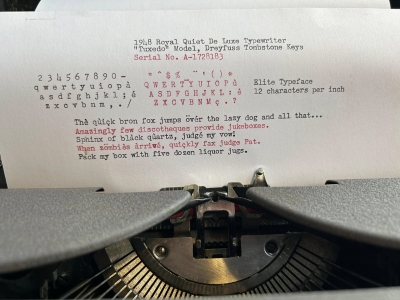 1948 Royal Quiet De Luxe Typewriter
"Tuxedo" Model, Dreyfuss Tombstone Keys
Serial No. A-1728183
234567890-
qwertyuiopà
asdfghjkl;é
zxcvbnm,./
QWERTYUIOPà
ASDFGHJKL:é
ZXCVBNMç.?
Elite Typeface
12 characters per inch
Thê qûîçk bron fox jumps övér the lazy dog and all that...
Amazingly few discotheques provide jukeboxes.
Sphinx of blàck qùàrtz, judgé my vow!
Whèn zömbiès àrrivé, quiçkly fax judge Pat.
Pàck my box with five dozen liquor jugs.